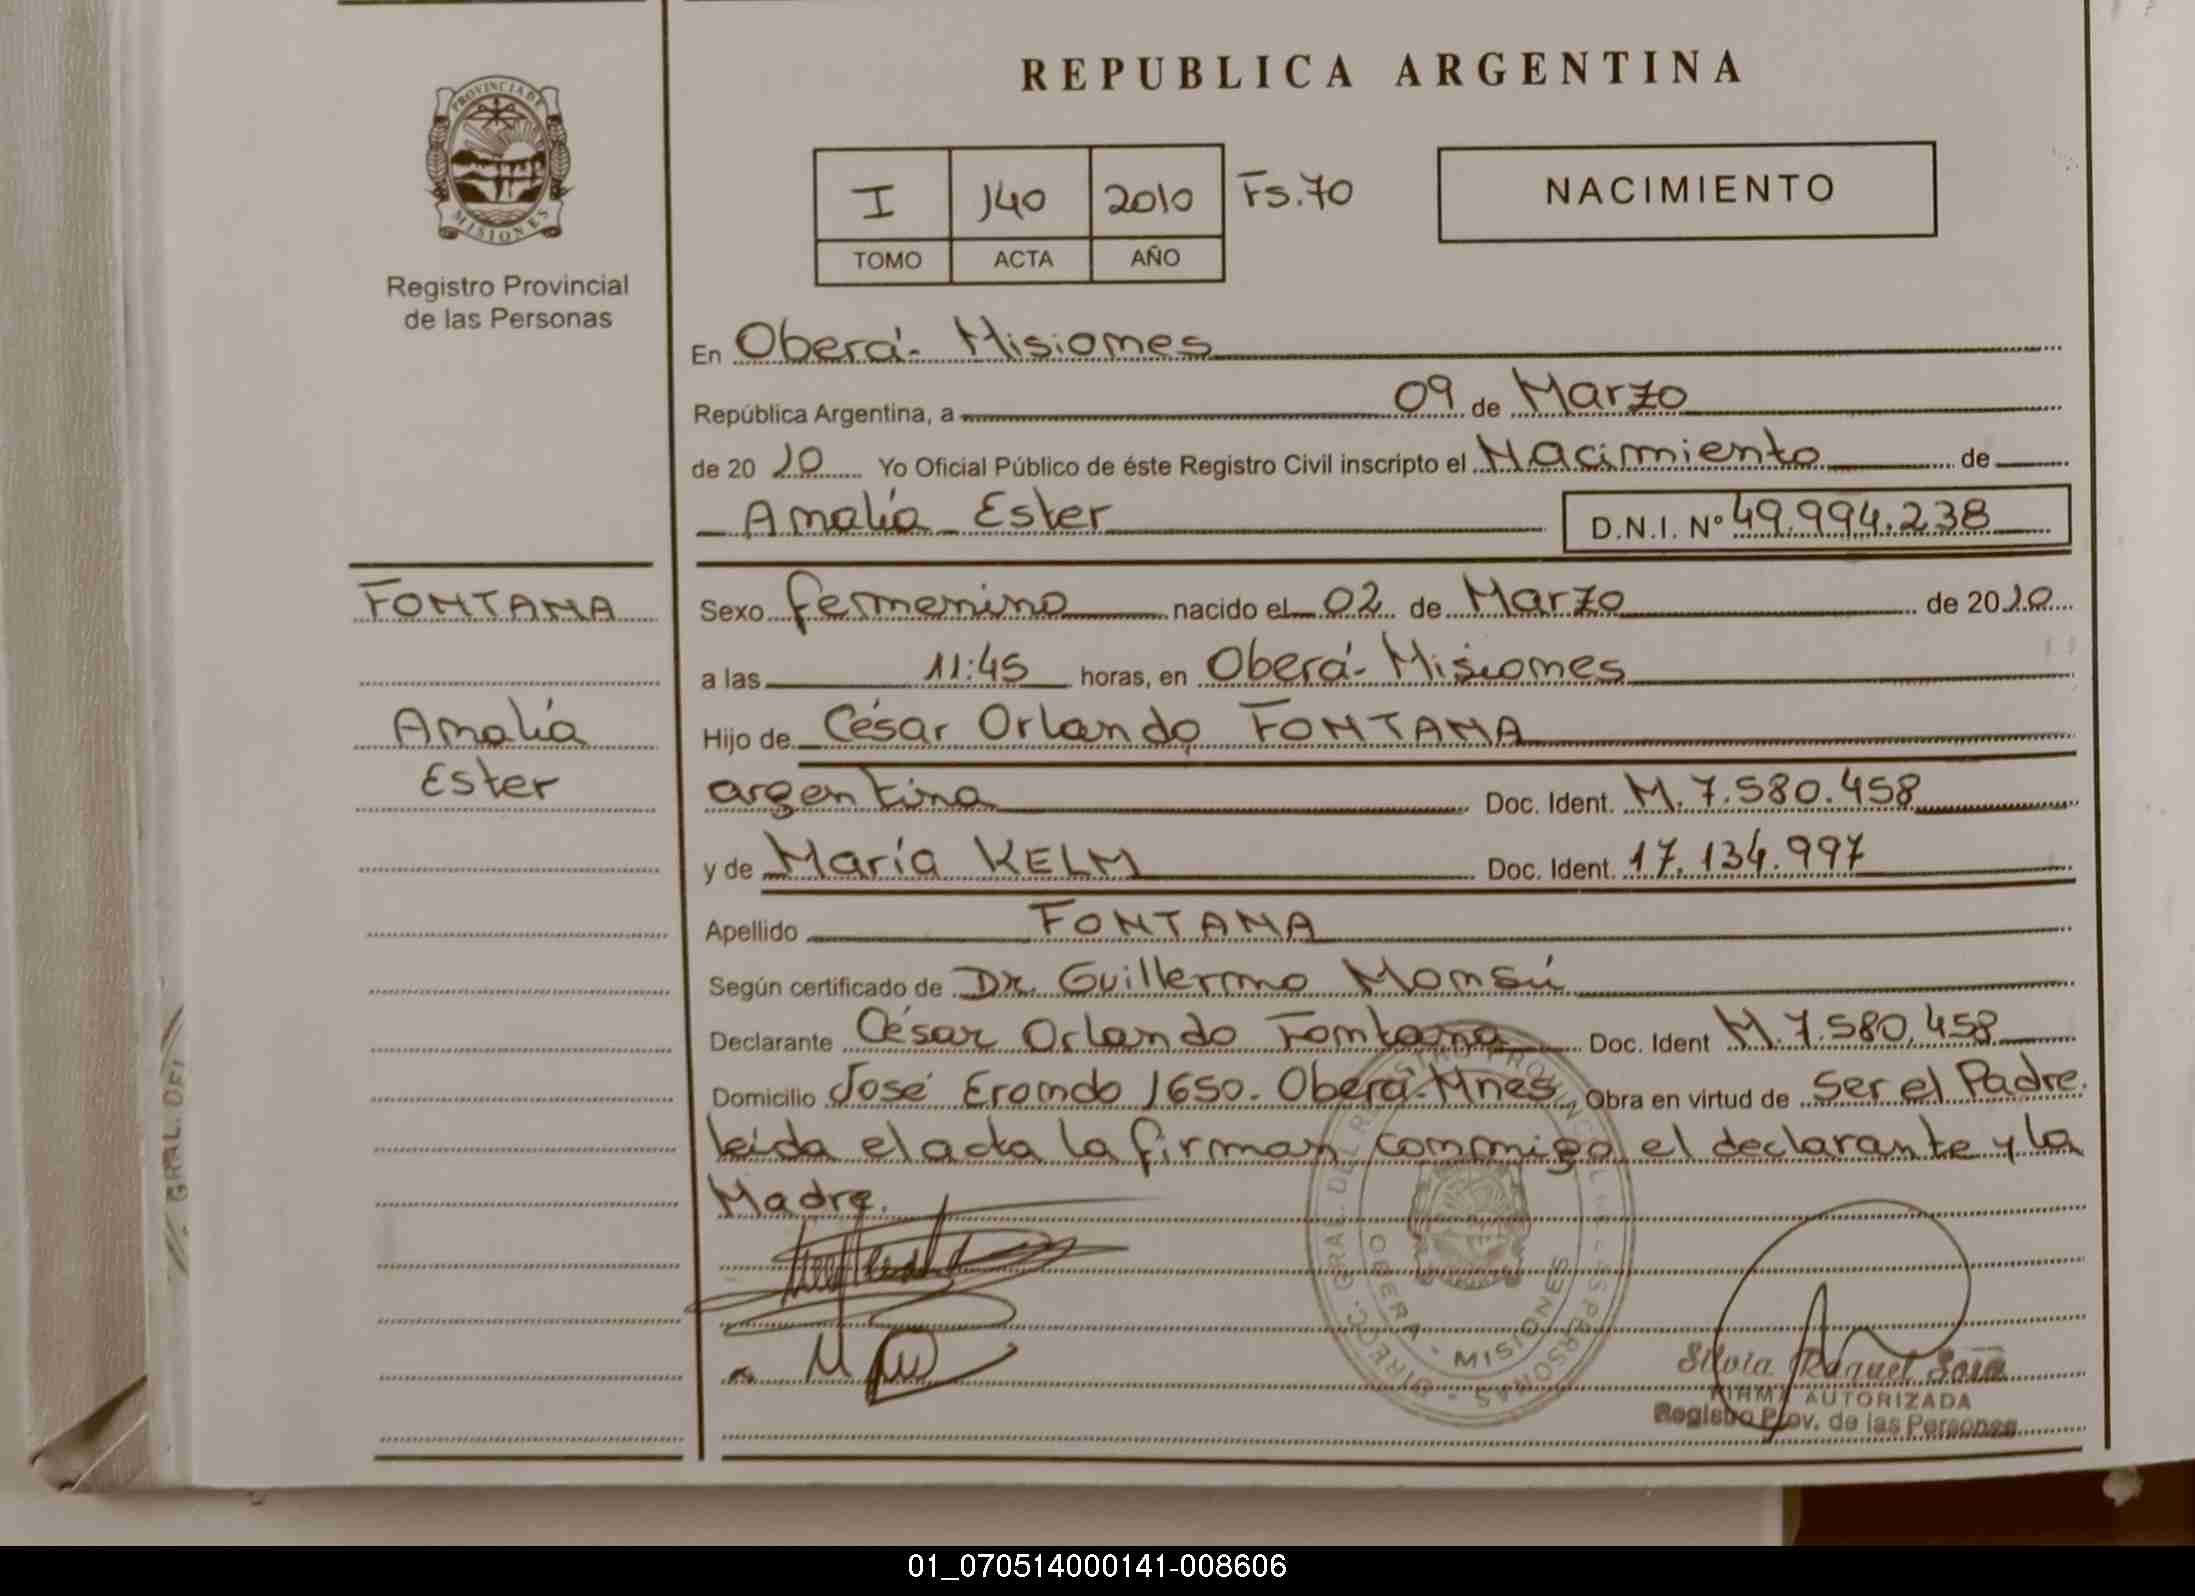 REPUBLICA ARGENTINA
PROVINCIA DE
MISIONES
Registro Provincial
de las Personas
I 140 2010 Fs.70
TOMO ACTA AÑO
NACIMIENTO
En Oberá- Misiones
República Argentina, a 09 de Marzo
de 20 10 Yo Oficial Público de éste Registro Civil inscripto el Nacimiento de
Amalia Ester D.N.I. Nº 49.994.238
FONTANA
Amalia
Ester
Sexo femenino nacido el 02 de Marzo de 2010
a las 11:45 horas, en Oberá- Misiones
Hijo de César Orlando FONTANA
argentina Doc. Ident. M.7.580.458
y de María KELM Doc. Ident. 17.134.997
Apellido FONTANA
Según certificado de Dr. Guillermo Monsú
Declarante César Orlando Fontana Doc. Ident M.7.580.458
Domicilio José Erondo 1650. Oberá-Mnes Obra en virtud de Ser el Padre.
leída el acta la firman conmigo el declarante y la
Madre.
DIRECC. GRAL. DEL REGISTRO PROVINCIAL DE LAS PERSONAS
OBERA - MISIONES
Silvia Raquel Soza
FIRMA AUTORIZADA
Registro Prov. de las Personas
GRAL. DEL
01_070514000141-008606